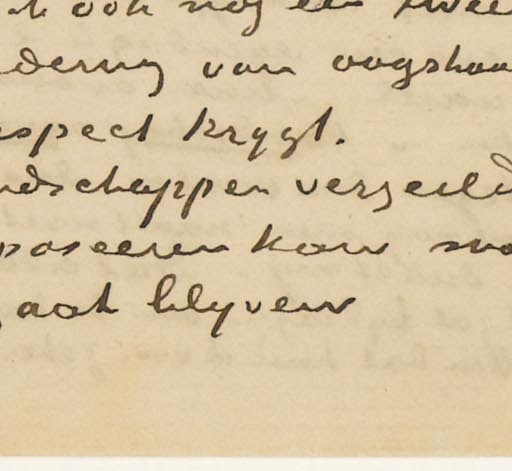 ook nog een twee
dering van oogshaa
spect krygt.
ndschappen verzeild
poseeren kan sno
gaat blyven